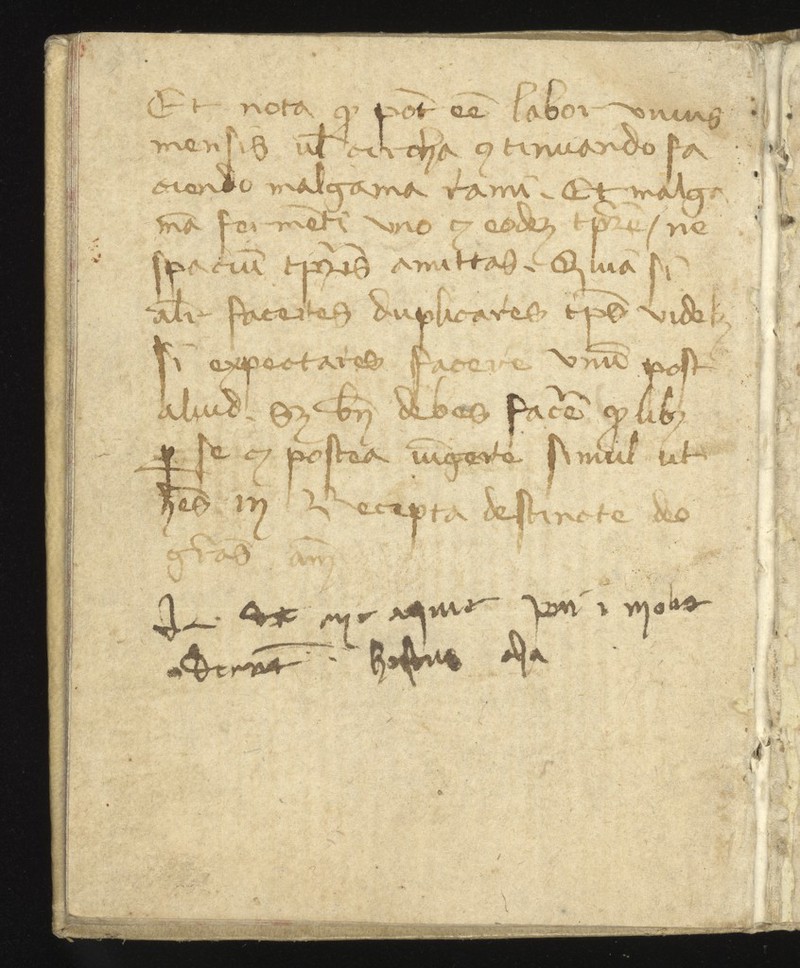 Et nota ꝙ pot̄ eē labor unius
mensis ul̄ circha ꝯtinuando fa
ciendo malgama rami. Et malga
ma fermēti uno ꝯ eodeꝫ tp̄re / ne
spaciū tp̄ris amittas. Quia si
alr̄ faceres duplicares tp̄s videlꝫ
si expectares facere unū post
aliud. Sꝫ bn̄ debes facē ꝙlibꝫ
ꝑ se ꝯ postea iūgere simul ut
hēs in Recepta destincte deo
gr̄as am̄